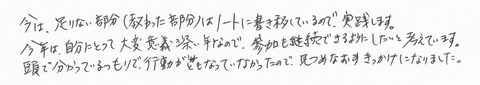 今は、足りない部分(教わった部分)はノートに書き移しているので実践します。
今年は、自分にとって大変意義深い年なので、参加も継続できるようにしたいと考えています。
頭で分かっているつもりで行動がともなっていなかったので、見つめなおすきっかけになりました。